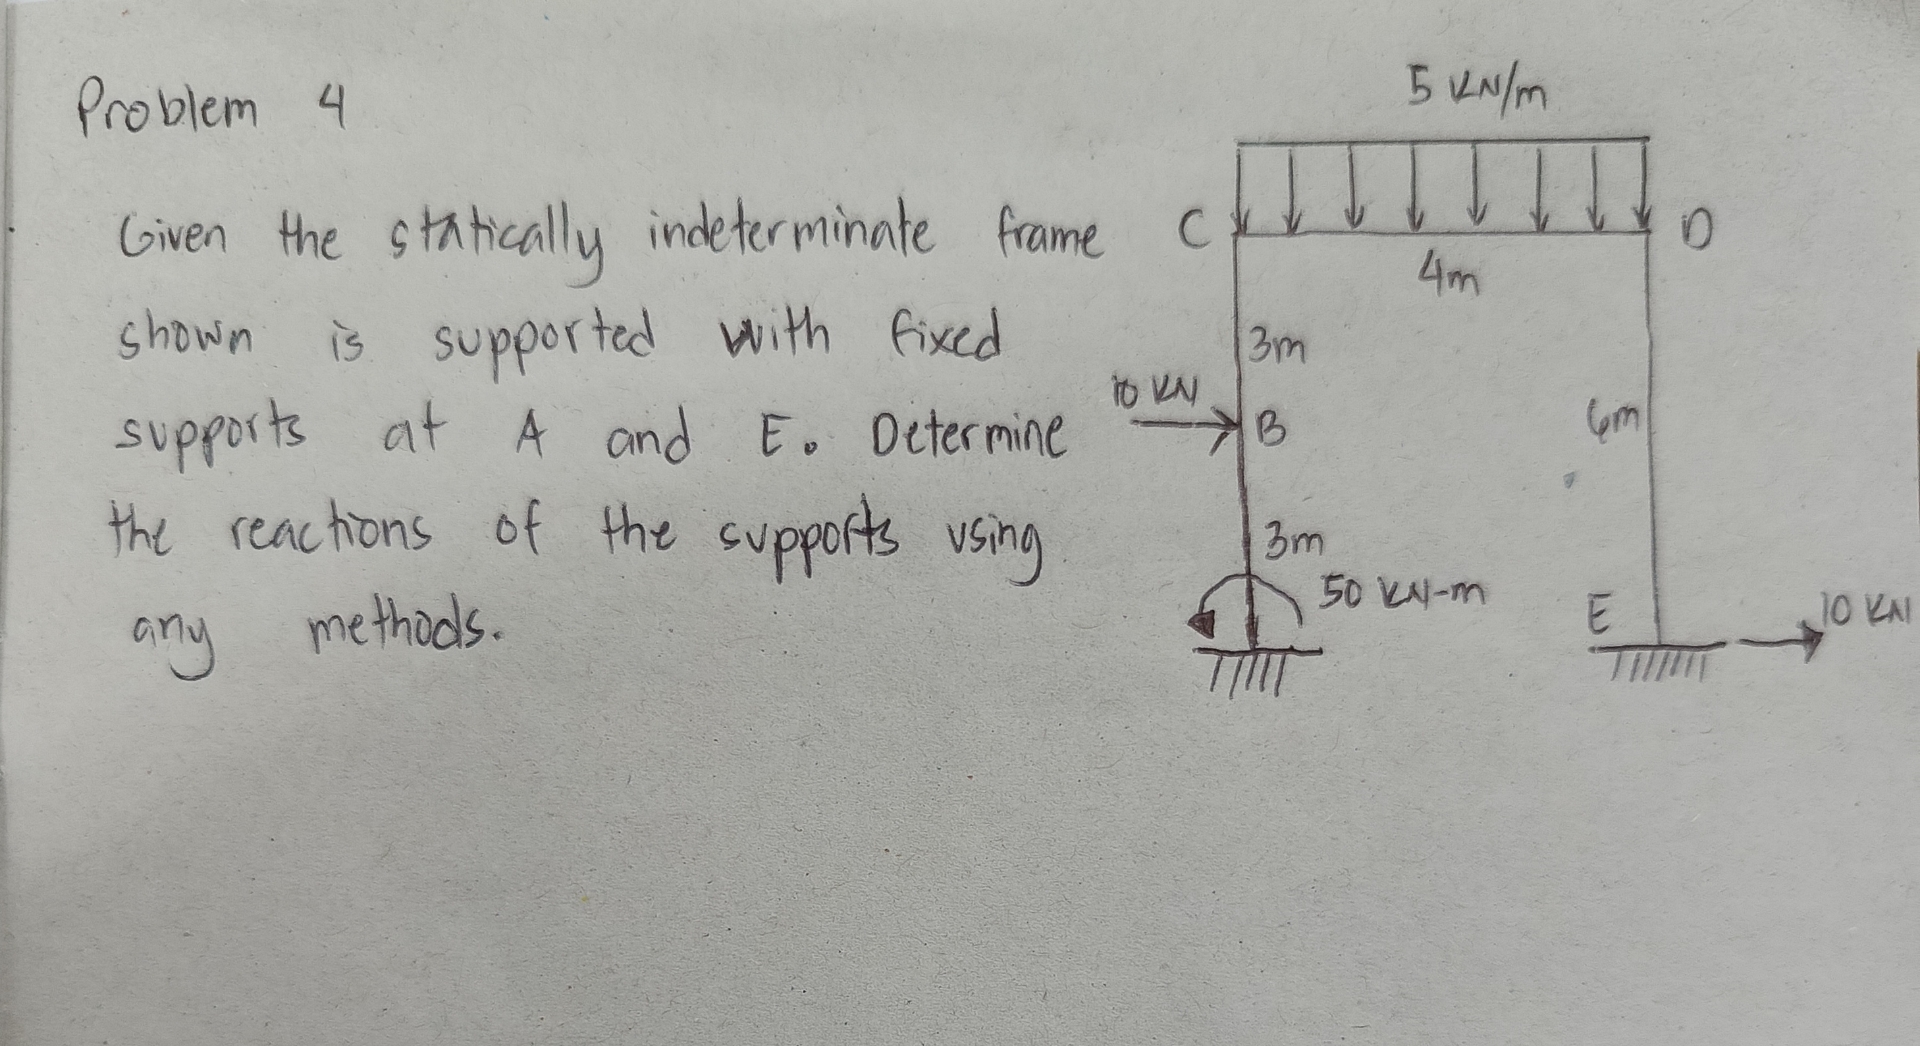 Problem 4
Given the statically indeterminate frame
shown is supported with fixed
supports at A and E. Determine
the reactions of the supports using
any methods.
5 KN/m
C
D
4m
3m
10 KN
B
6m
3m
50 KN-m
E
10 KN